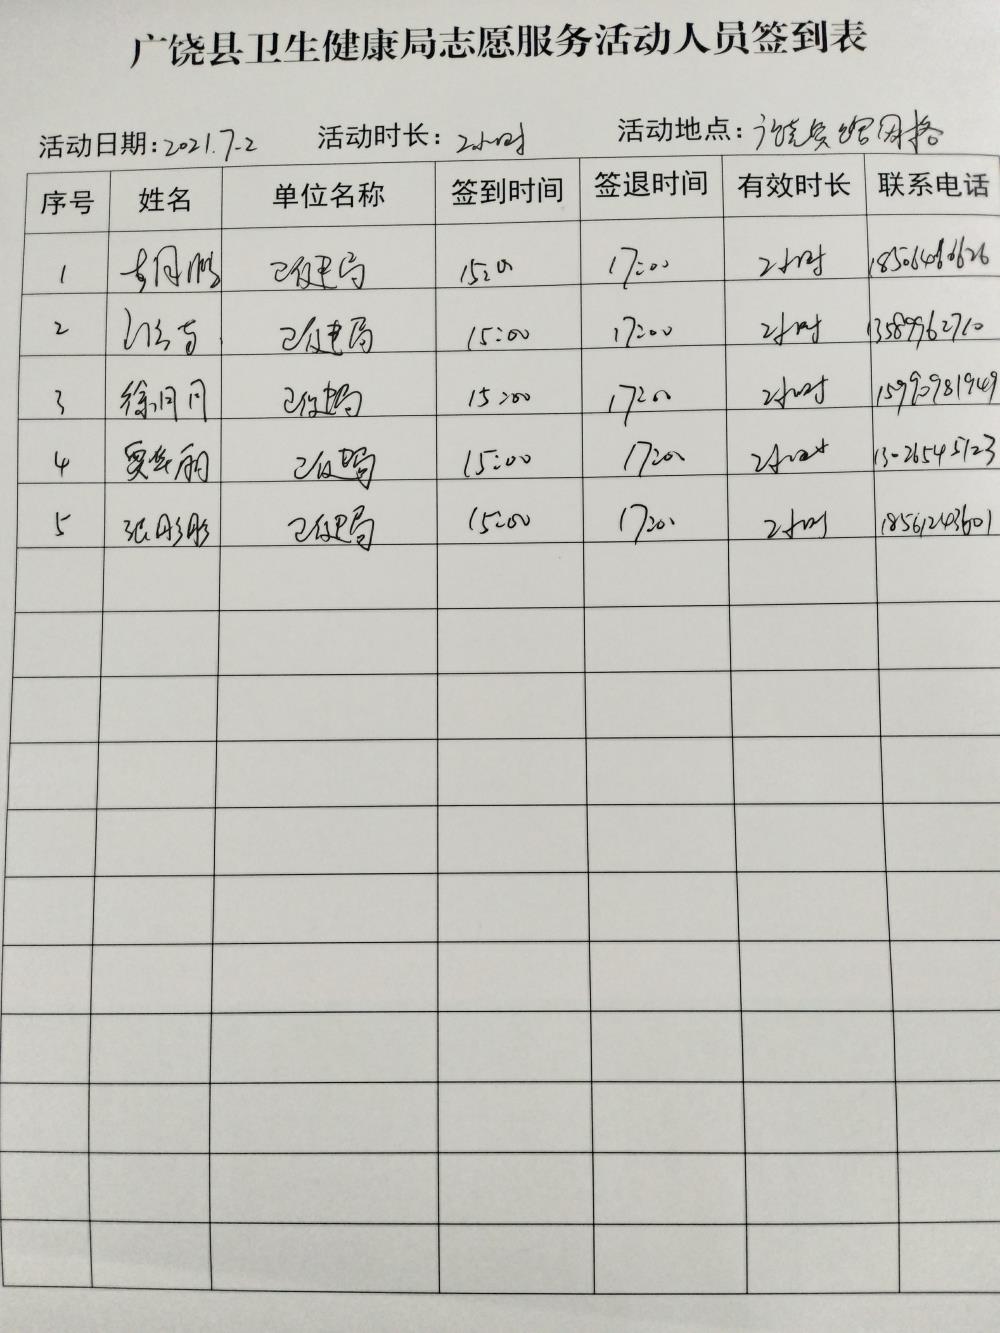 广饶县卫生健康局志愿服务活动人员签到表
活动日期:2021.7.2 活动时长:2小时 活动地点:广饶
序号 姓名 单位名称 签到时间 签退时间 有效时长 联系电话
1 卫健局 15:00 17:00 2小时
2 卫健局 15:00 17:00 2小时 13589962710
3 徐月月 卫健局 15:00 17:00 2小时
4 卫健局 15:00 17:00 2小时
5 张彤彤 卫健局 15:00 17:00 2小时 18561243601